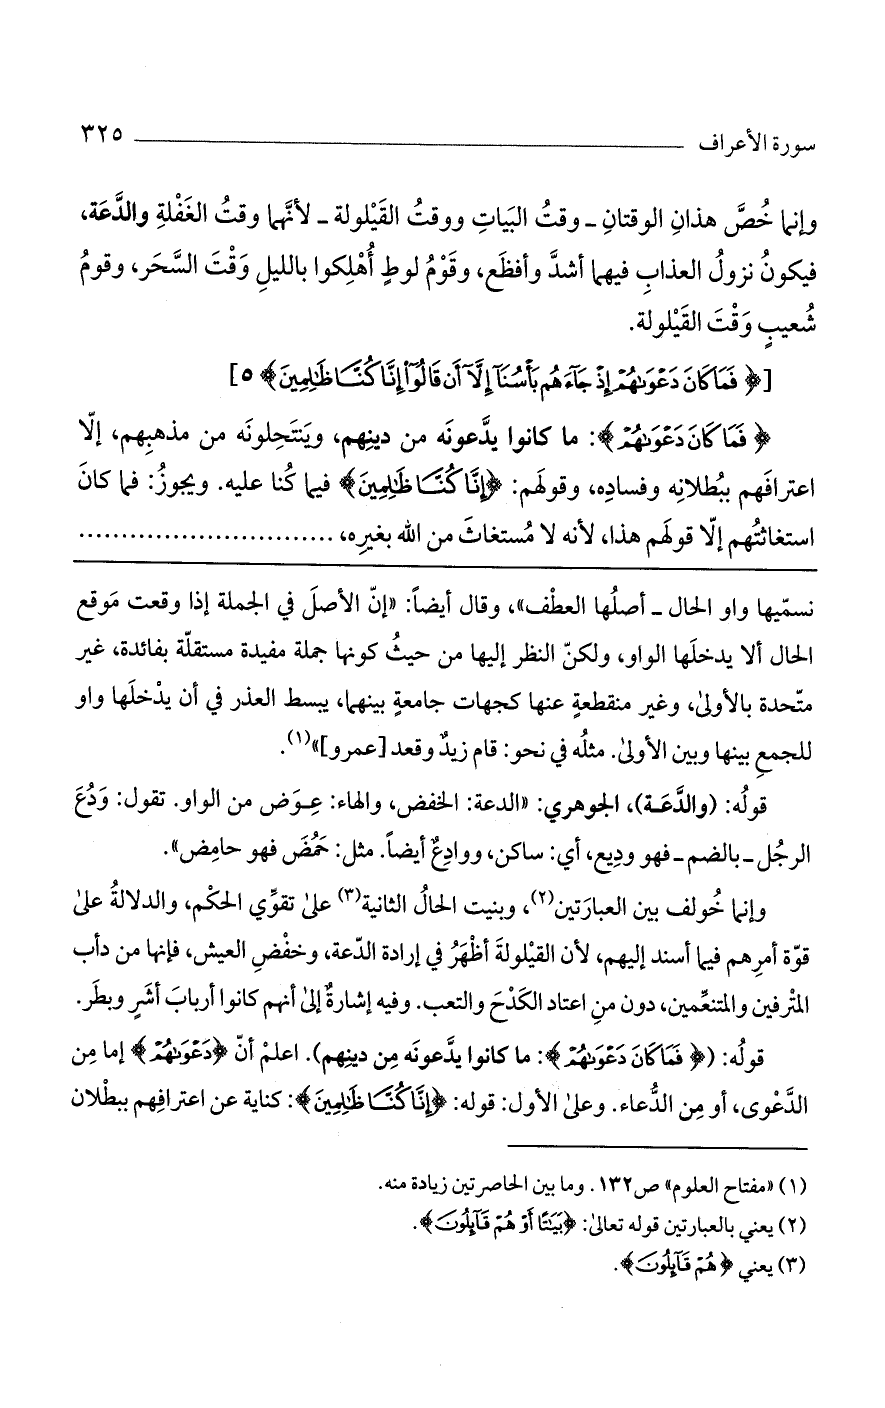 سورة الأعراف ٣٢٥
وإنما خُصَّ هذانِ الوقتانِ ـ وقتُ البَياتِ ووقتُ القَيْلولة ـ لأنَّهما وقتُ الغَفْلةِ والدَّعَة،
فيكونُ نزولُ العذابِ فيهما أشدَّ وأفظَع، وقَوْمُ لوطٍ أُهْلِكوا بالليلِ وَقْتَ السَّحَر، وقومُ
شُعيبٍ وَقْتَ القَيْلولة.
[﴿ فَمَا كَانَ دَعْوَىٰهُمْ إِذْ جَآءَهُم بَأْسُنَآ إِلَّآ أَن قَالُوٓا۟ إِنَّا كُنَّا ظَٰلِمِينَ ﴾ ٥]
﴿ فَمَا كَانَ دَعْوَىٰهُمْ ﴾: ما كانوا يدَّعونَه من دينِهم، ويَنتَحِلونَه من مذهبِهم، إلّا
اعترافَهم ببُطلانِه وفسادِه، وقولَهم: ﴿إِنَّا كُنَّا ظَٰلِمِينَ﴾ فيما كُنا عليه. ويجوزُ: فما كانَ
استغاثتُهم إلّا قولَهم هذا، لأنه لا مُستغاثَ من الله بغيرِه، ............................
نسمّيها واو الحال ـ أصلُها العطْف»، وقال أيضاً: «إنّ الأصلَ في الجملة إذا وقعت مَوقع
الحال ألا يدخلَها الواو، ولكنّ النظر إليها من حيثُ كونها جملة مفيدة مستقلّة بفائدة، غير
متّحدة بالأولىٰ، وغير منقطعةٍ عنها كجهات جامعةٍ بينهما، يبسط العذر في أن يدْخلَها واو
للجمعِ بينها وبين الأولىٰ. مثلُه في نحو: قام زيدٌ وقعد [عمرو]»(١).
قولُه: (والدَّعَـة)، الجوهري: «الدعة: الخفض، والهاء: عِـوَض من الواو. تقول: وَدُعَ
الرجُل ـ بالضم ـ فهو ودِيع، أي: ساكن، ووادِعٌ أيضاً. مثل: حَمُضَ فهو حامِض».
وإنما خُولف بين العبارَتين(٢)، وبنيت الحالُ الثانية(٣) علىٰ تقوِّي الحكْم، والدلالةُ علىٰ
قوّة أمرِهم فيما أسند إليهم، لأن القيْلولةَ أظْهَرُ في إرادة الدّعة، وخفْضِ العيش، فإنها من دأب
المتْرفين والمتنعِّمين، دون منِ اعتاد الكَدْحَ والتعب. وفيه إشارةٌ إلىٰ أنهم كانوا أربابَ أشَرٍ وبطَر.
قولُه: (﴿ فَمَا كَانَ دَعْوَىٰهُمْ ﴾: ما كانوا يدَّعونَه مِن دينِهم). اعلمْ أنّ ﴿دَعْوَىٰهُمْ ﴾ إما مِن
الدَّعْوى، أو مِن الدُّعاء. وعلىٰ الأول: قوله: ﴿إِنَّا كُنَّا ظَٰلِمِينَ﴾: كناية عن اعترافِهم ببطْلان
(١) «مفتاح العلوم» ص١٣٢. وما بين الحاصرتين زيادة منه.
(٢) يعني بالعبارتين قوله تعالىٰ: ﴿بَيَٰتًا أَوْ هُمْ قَآئِلُونَ﴾.
(٣) يعني ﴿ هُمْ قَآئِلُونَ﴾.